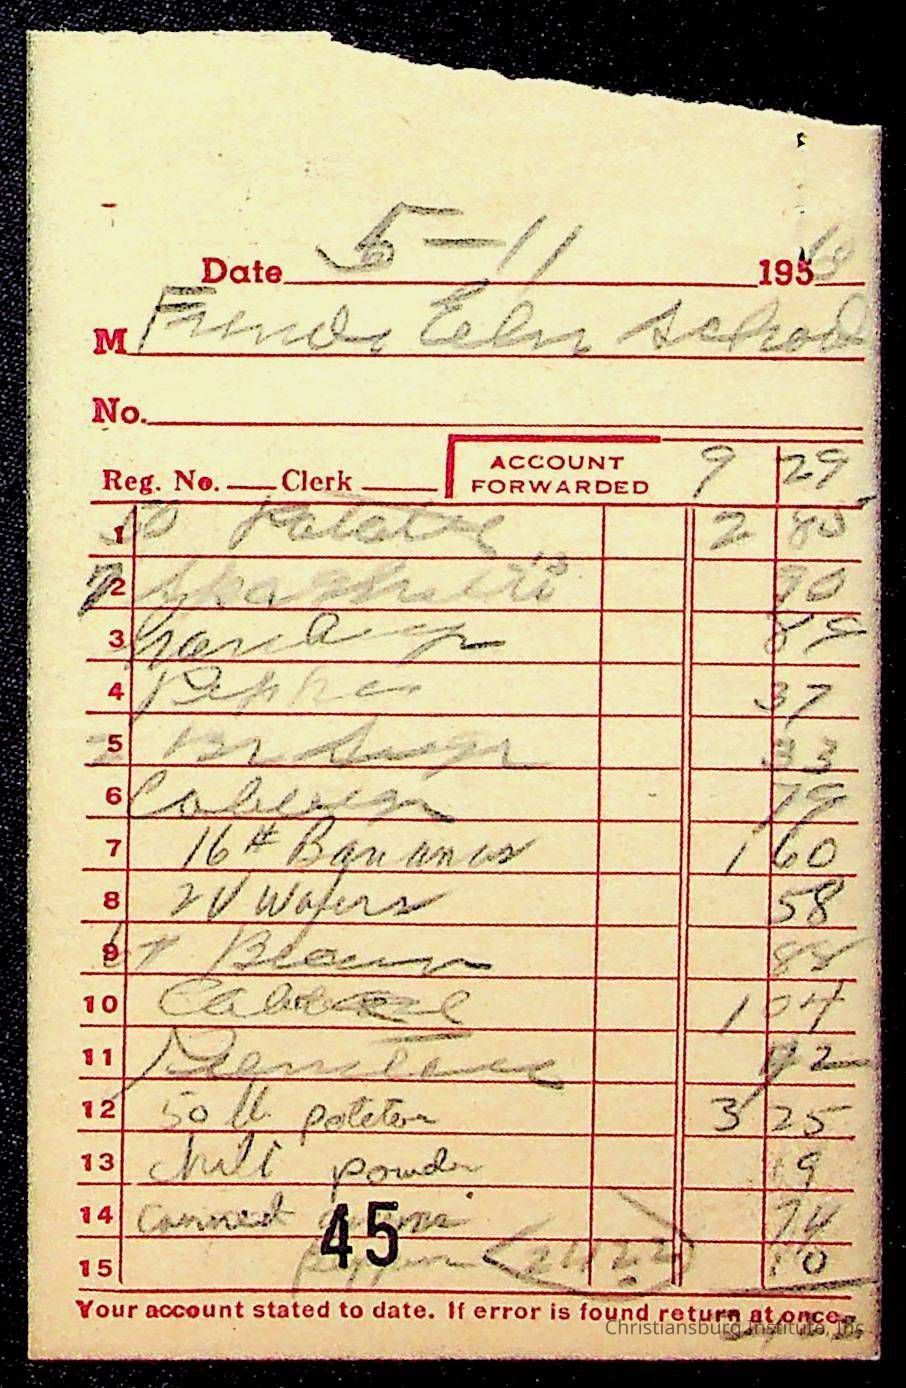 Date 5-11 195
M Friends Elem School
No.
Reg. No. Clerk ACCOUNT FORWARDED 9 29
1 50 Potatoes 2 85
2 7 Spaghetti 90
3 89
4 Pepper 37
5 2 Br Sugar 33
6 79
7 16# Bananas 1 60
8 2 V Wafers 58
9 88
10 Cabbage 1 04
11
12 50 lb potatoes 3 25
13 chili powder 19
14 canned 74
15 10
45
Your account stated to date. If error is found return at once.
Christiansburg Institute, Inc